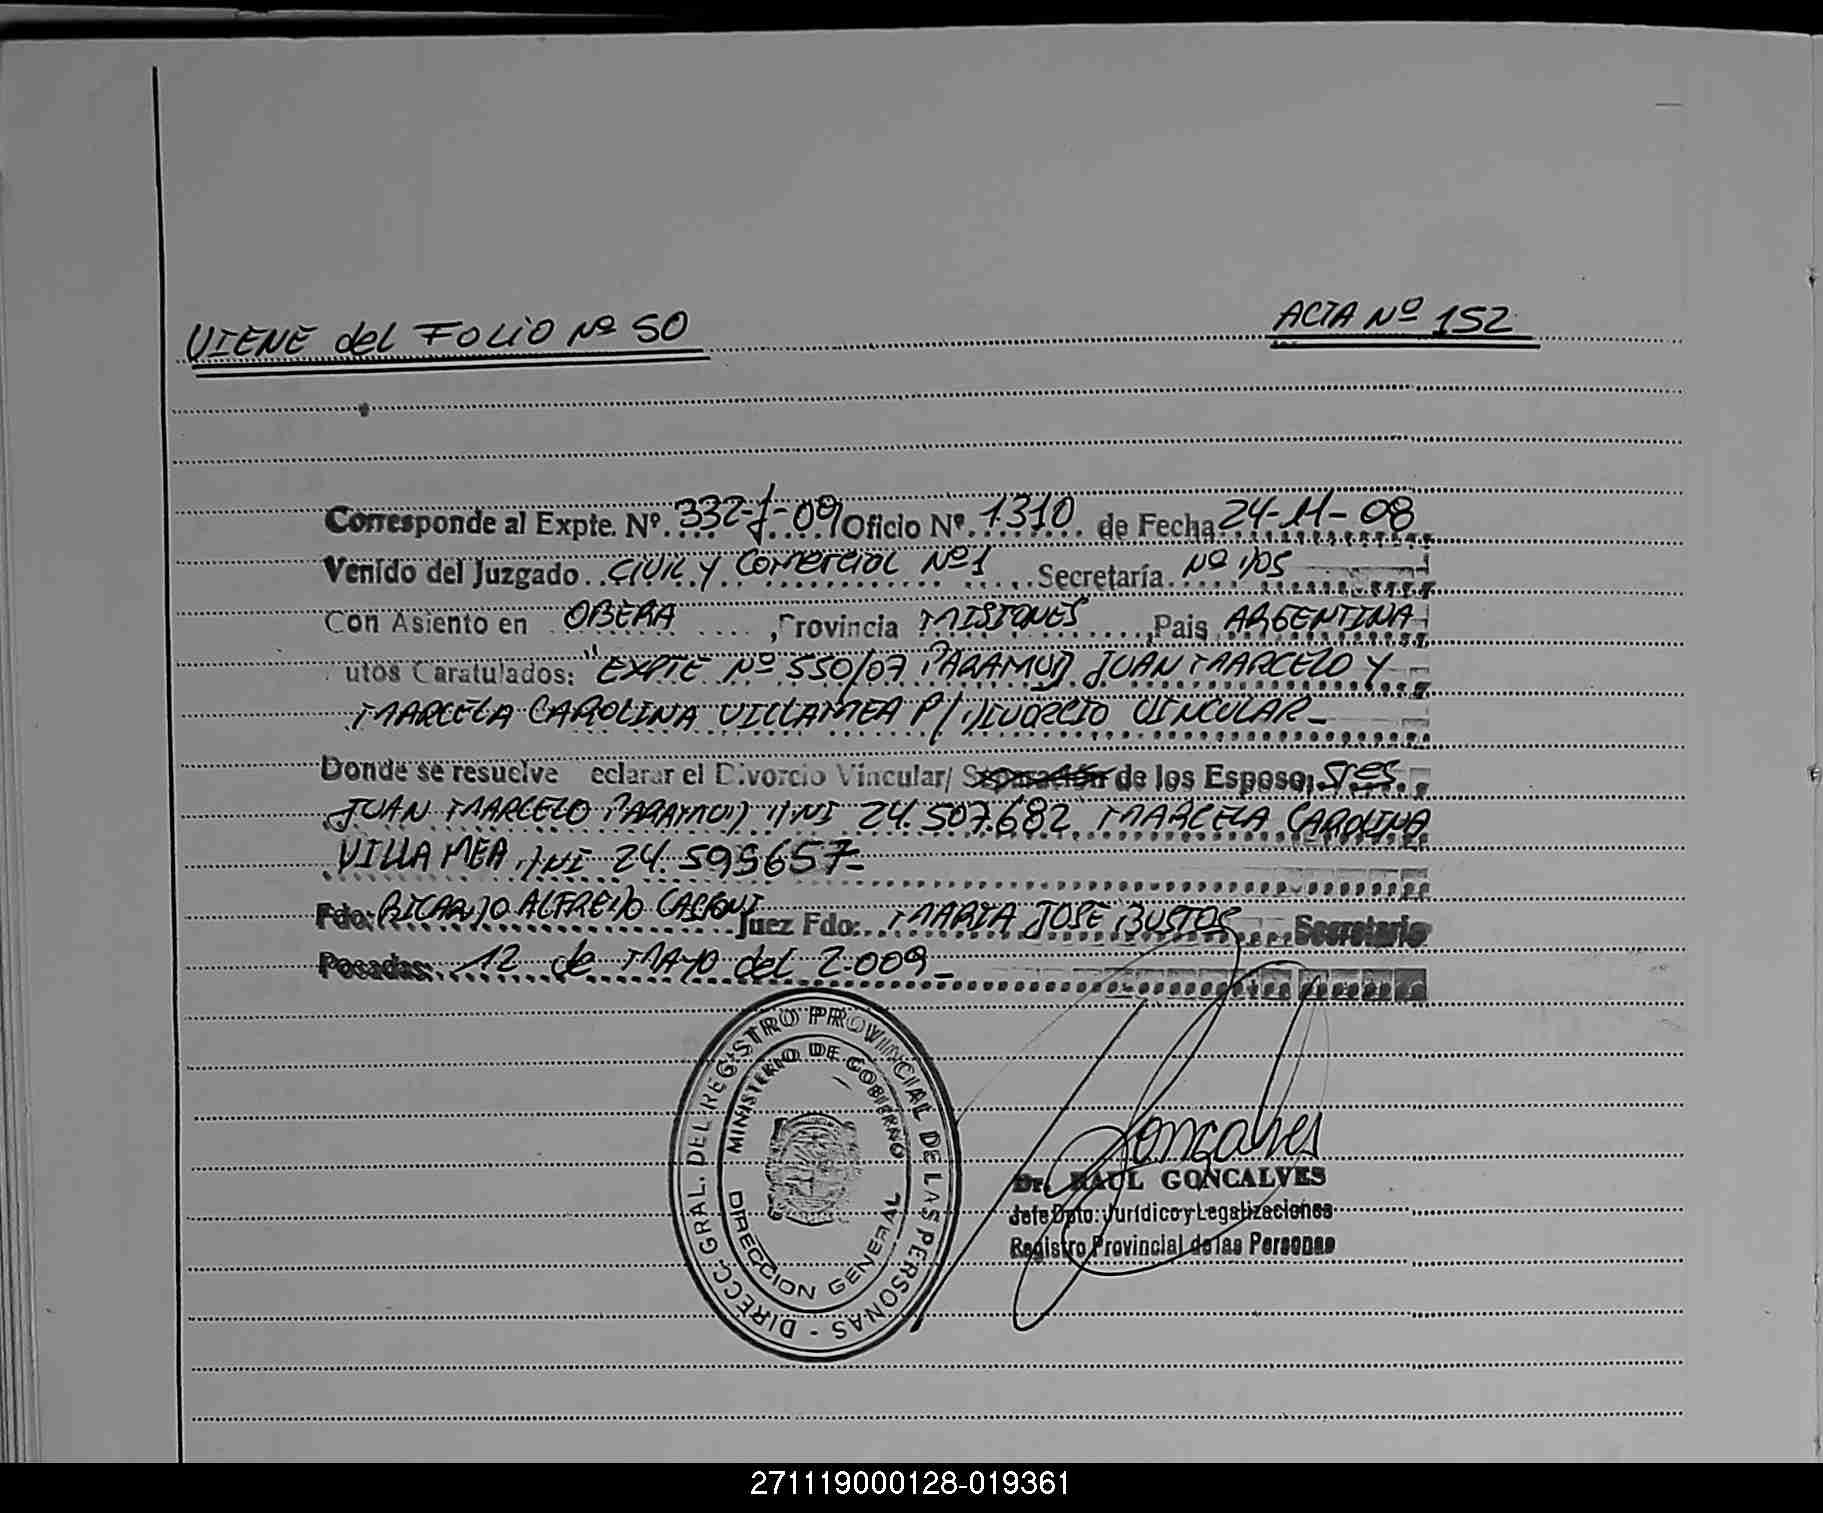 VIENE del FOLIO Nº 50
ACTA Nº 152
Corresponde al Expte. Nº. 332-J-09 Oficio Nº. 1310 de Fecha 24-11-08
Venido del Juzgado CIVIL Y COMERCIAL Nº 1 Secretaría Nº DOS
Con Asiento en OBERA, Provincia MISIONES, Pais ARGENTINA
utos Caratulados: "EXPTE Nº 550/07 JUAN MARCELO Y
MARCELA CAROLINA VILLAMEA P/ DIVORCIO VINCULAR_
Donde se resuelve eclarar el Divorcio Vincular/ Separación de los Esposo, SRES.
JUAN MARCELO DNI 24.507.682 MARCELA CAROLINA
VILLAMEA DNI 24.595657-
Fdo: RICARDO ALFREDO CASONI Juez Fdo: MARIA JOSE BUSTOS Secretario
Posadas: 12 de MAYO del 2.009_
DIRECC. GRAL. DEL REGISTRO PROVINCIAL DE LAS PERSONAS -
MINISTERIO DE GOBIERNO
DIRECCION GENERAL
Goncalves
Dr. RAUL GONCALVES
Jefe Dpto. Jurídico y Legalizaciones
Registro Provincial de las Personas
271119000128-019361